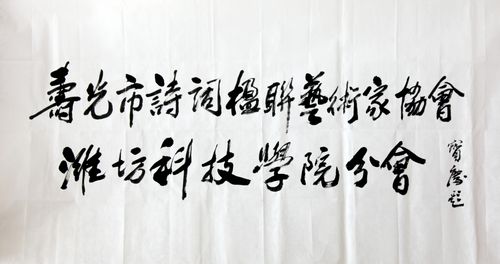 壽光市詩词楹聯藝術家協會
潍坊科技學院分會
寶慶题